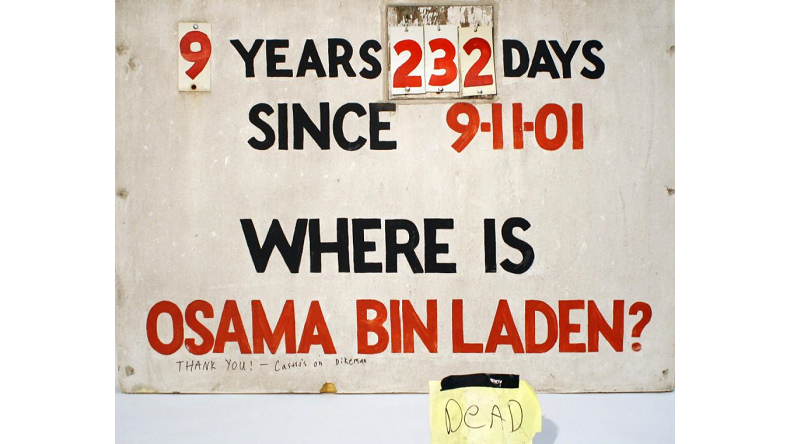 9 YEARS 232 DAYS
SINCE 9-11-01
WHERE IS
OSAMA BIN LADEN?
THANK YOU! - Castro's on Dikeman
DEAD